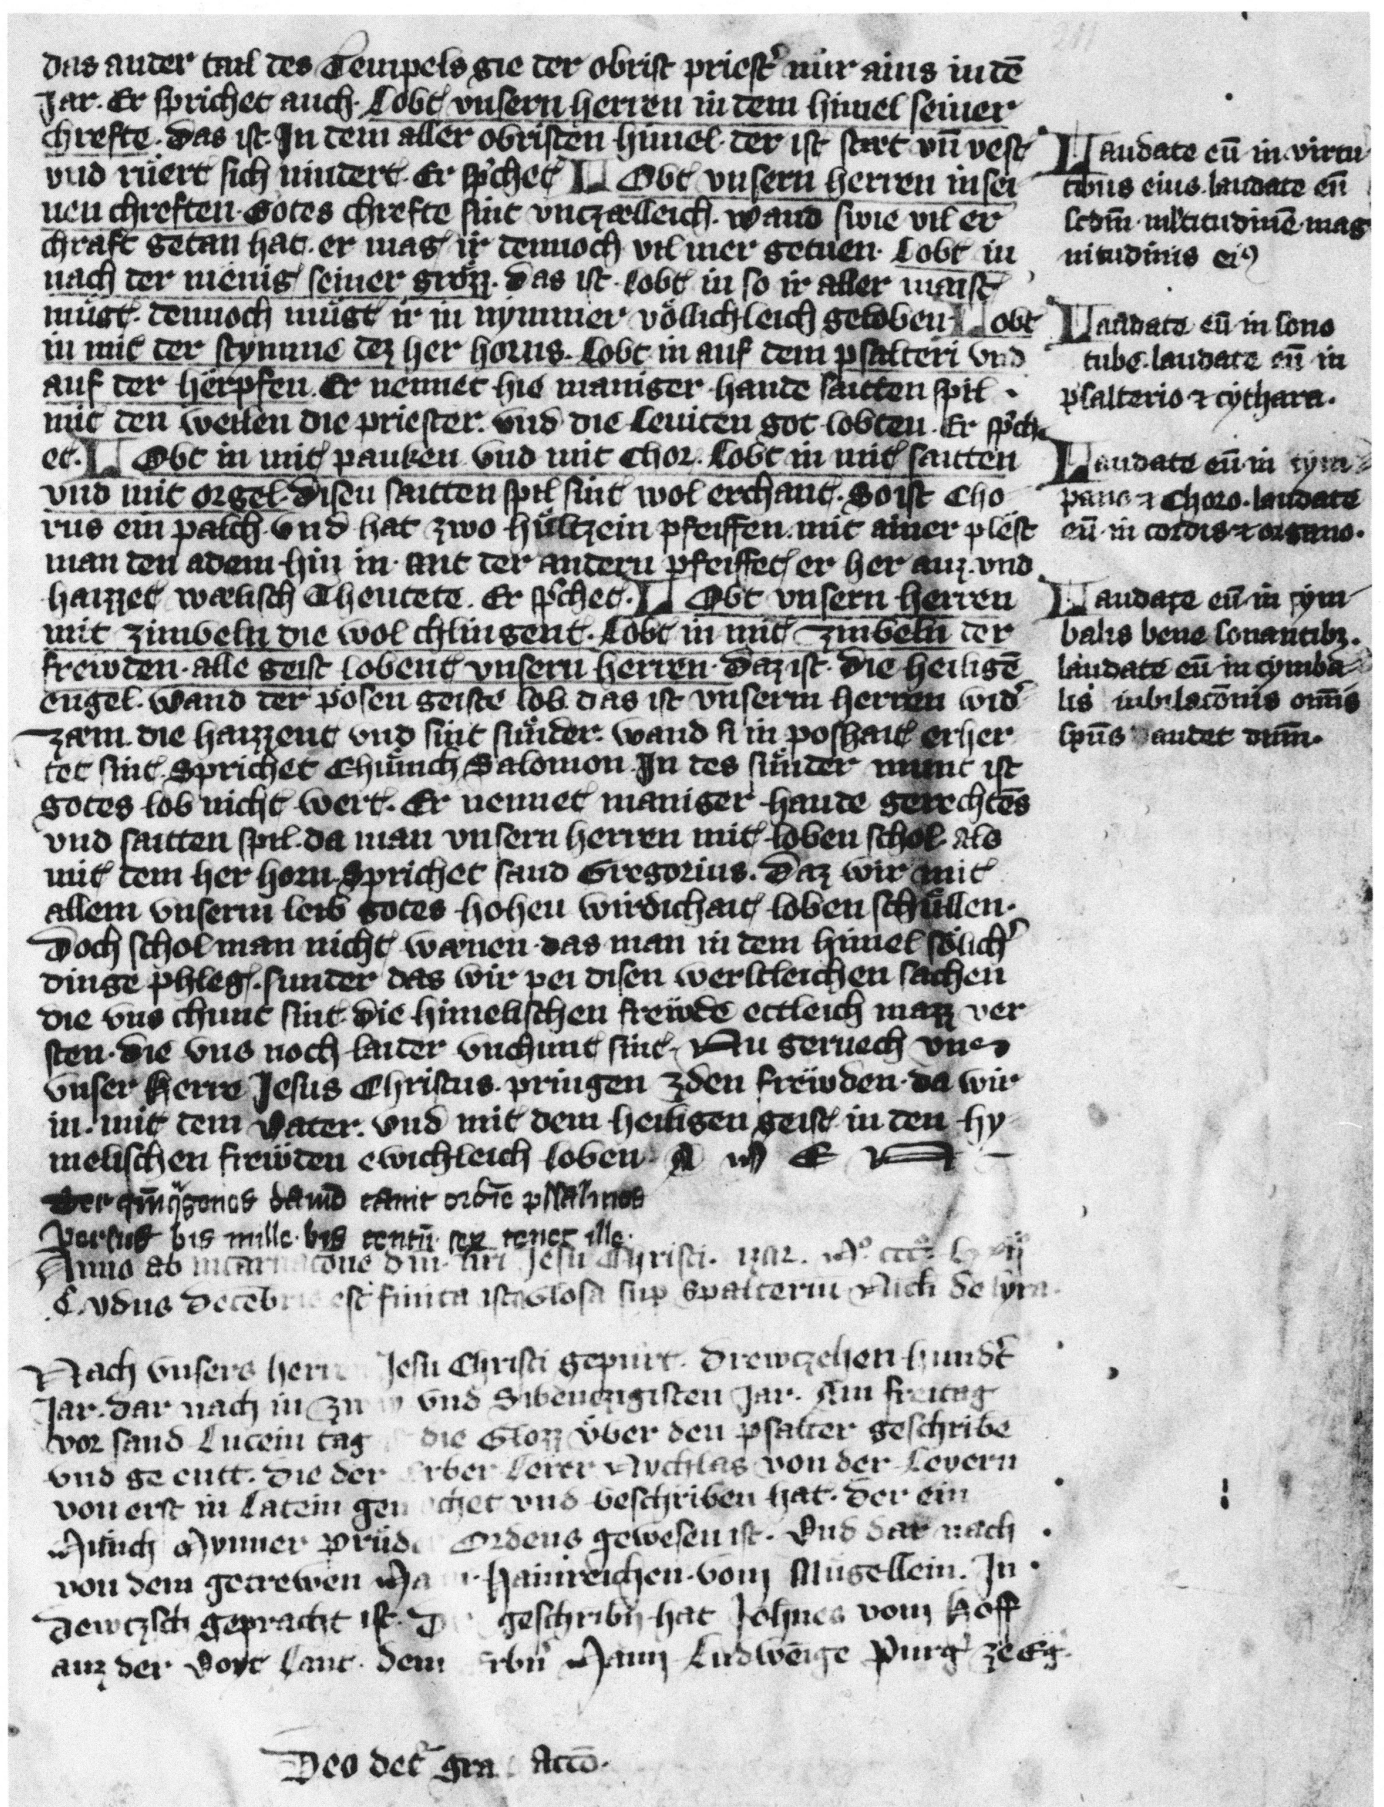 das ander tail des Tempels gie der obrist priest͛ nür ains in dē
Jar. Er sprichet auch. Lobt vnsern herren in dem himel seiner
chrefte. das ist In dem aller obristen himel. der ist stæt vn̄ vest
vnd rüert sich nindert. Er sp͛chet LObt vnsern herren in sei
nen chreften. Gotes chrefte sint vnczælleich. wand swie vil er
chraft getan hat. er mag ir dennoch vil mer getuen. Lobt in
nach der menig seiner grözz. das ist. lobt in so ir aller maist
mügt. dennoch mügt ir in nymmer völlichleich geloben. Lobt
in mit der stymme dez her horns. Lobt in auf dem psalteri vnd
auf der herpfen. Er nennet hie maniger hande saitten spil.
mit den weilen die priester. vnd die Leuiten got lobten. Er sp͛ch
et. LObt in mit pauken vnd mit Chor. Lobt in mit saitten
vnd mit orgel. disen saitten spil sint wol erchant. So ist Cho
rus ein palch. vnd hat zwo hültzein pfeiffen. mit ainer plest
man den adem hin in. mit der andern pfeiffet er her auz. vnd
haizzet wælisch Theutete. Er sp͛chet. LObt vnsern herren
mit zimbeln die wol chlingent. Lobt in mit zimbeln der
frewden. alle geist lobent vnsern herren. daz ist. die heiligē
engel. wand der posen geiste lob. das ist vnserm herren wid͛
zæm. die haizzent vnd sint sünder. wand si in poshait erher
tet sint. Sprichet Chünich Salomon. In des sünder munt ist
gotes lob nicht wert. Er nennet maniger hande gerechtēs
vnd saitten spil. da man vnsern herren mit loben schol. als
mit dem her horn. Sprichet sand Gregorius. Daz wir mit
allem vnserm leib gotes hohen wirdichait loben schüllen.
Doch schol man nicht wænen. das man in dem himel sölich͛
dinge phleg. sunder das wir pei disen werltleichen sachen
die vns chunt sint. die himelischen frewde ettleich mazz ver
sten. die vns noch laider vnchunt sint. Nu geruech vns
vnser Herre Jesus Christus. pringen zden frewden. da wir
in. mit dem Vater. vnd mit dem heiligen geist in den hy
melischen frewden ewichleich loben. A M E N
Ter qn̄q̄genos dauid canit ordīe psalmos
Versus bis mille. bis centū sex canet ille.
Anno ab incarnacōne dni. nri Jesu Christi.
ydus decēbris est finita ista Glosa sup Spalteriū Nich de lyra.
Nach vnsers herr Jesu Christi gepurt. Drewczehen hundt͛
Jar. dar nach in zw vnd Sibenczigisten Jar. Am freitag
vor sand Lucein tag die Glozz über den psalter geschribē
vnd ge entt. Die der Erber Lerer Nychlas von der Leyern
von erst in Latein gemachet vnd beschriben hat. der ein
Münch Mynner prüde Ordens gewesen ist. Vnd dar nach
von dem getrewen Ma Hainreichen. vom Mügellein. In
dewczsch gepracht ist. D geschribn hat Johnes vom Hoff
auz der Voyt Lant. dem Erbn͛ Mann Ludweige Purg͛ ze Eg͛.
Deo det͛ gra acco.
Laudate eū in virtu
tibus eius. laudate eū
scdm̄ multitudinē mag
nitudinis ei⁹
Laudate eū in sono
tube. laudate eū in
psalterio & cythara.
Laudate eū in tym
pano & Choro. laudate
eū in cordis & organo.
Laudate eū in cym
balis bene sonantibꝫ.
laudate eū in cymba
lis iubilacōnis omīs
sp̄us laudet dnm̄.